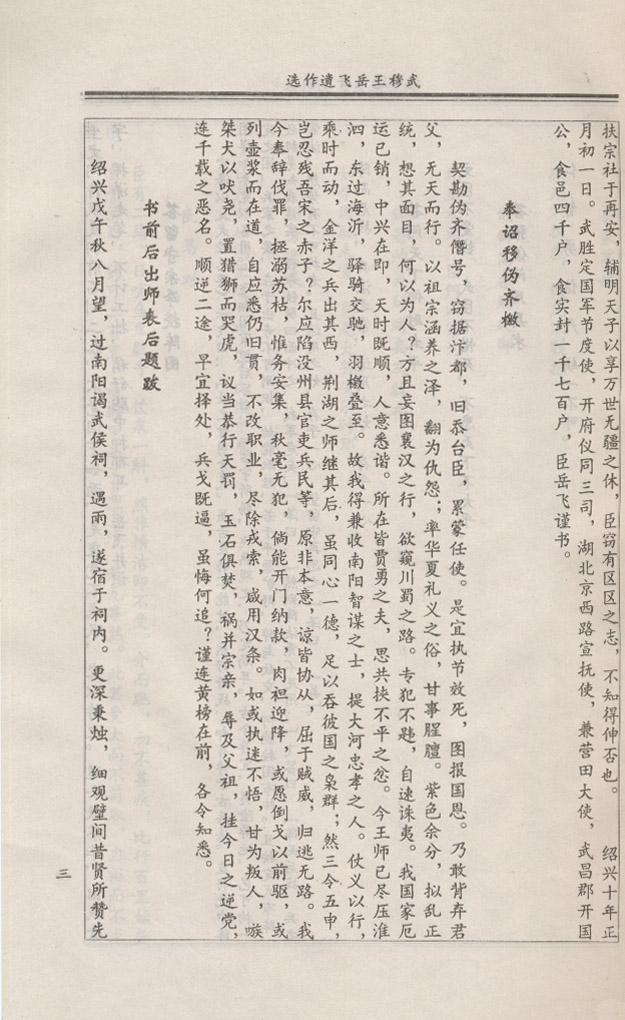 武穆王岳飞遗作选
扶宗社于再安，辅明天子以享万世无疆之休，臣窃有区区之志，不知得伸否也。 绍兴十年正
月初一日。武胜定国军节度使，开府仪同三司，湖北京西路宣抚使，兼营田大使，武昌郡开国
公，食邑四千户，食实封一千七百户，臣岳飞谨书。
奉诏移伪齐檄
契勘伪齐僭号，窃据汴都，旧忝台臣，累蒙任使。是宜执节效死，图报国恩。乃敢背弃君
父，无天而行。以祖宗涵养之泽，翻为仇怨；率华夏礼义之俗，甘事腥膻。紫色余分，拟乱正
统，想其面目，何以为人？方且妄图襄汉之行，欲窥川蜀之路。专犯不韪，自速诛夷。我国家厄
运已销，中兴在即，天时既顺，人意悉谐。所在皆贾勇之夫，思共挟不平之忿。今王师已尽压淮
泗，东过海沂，驿骑交驰，羽檄叠至。故我得兼收南阳智谋之士，提大河忠孝之人。仗义以行，
乘时而动，金洋之兵出其西，荆湖之师继其后，虽同心一德，足以吞彼国之枭群；然三令五申，
岂忍残吾宋之赤子？尔应陷没州县官吏兵民等，原非本意，谅皆协从，屈于贼威，归逃无路。我
今奉辞伐罪，拯溺苏枯，惟务安集，秋毫无犯，倘能开门纳款，肉袒迎降，或愿倒戈以前驱，或
列壶浆而在道，自应悉仍旧贯，不改职业，尽除戎索，咸用汉条。如或执迷不悟，甘为叛人，嗾
桀犬以吠尧，置猎狮而哭虎，议当恭行天罚，玉石俱焚，祸并宗亲，辱及父祖，挂今日之逆党，
连千载之恶名。顺逆二途，早宜择处，兵戈既逼，虽悔何追？谨连黄榜在前，各令知悉。
书前后出师表后题跋
绍兴戊午秋八月望，过南阳谒武侯祠，遇雨，遂宿于祠内。更深秉烛，细观壁间昔贤所赞先
三